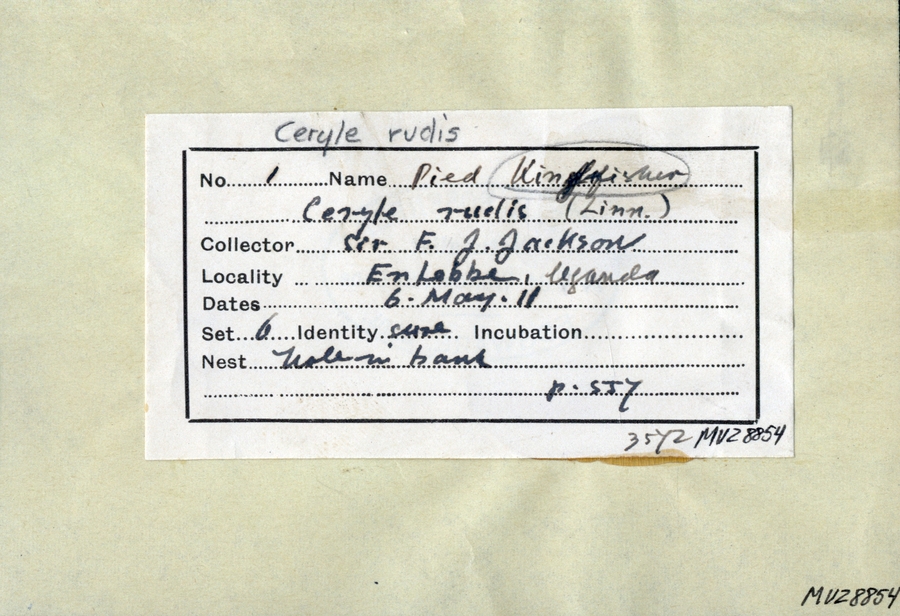 Ceryle rudis
No. 1 Name Pied Kingfisher
Ceryle rudis (Linn.)
Collector Sir F. J. Jackson
Locality Entebbe, Uganda
Dates 6. May. 11
Set 6 Identity sure Incubation
Nest Hole in bank
p. 557
3572 MVZ8854
MVZ8854